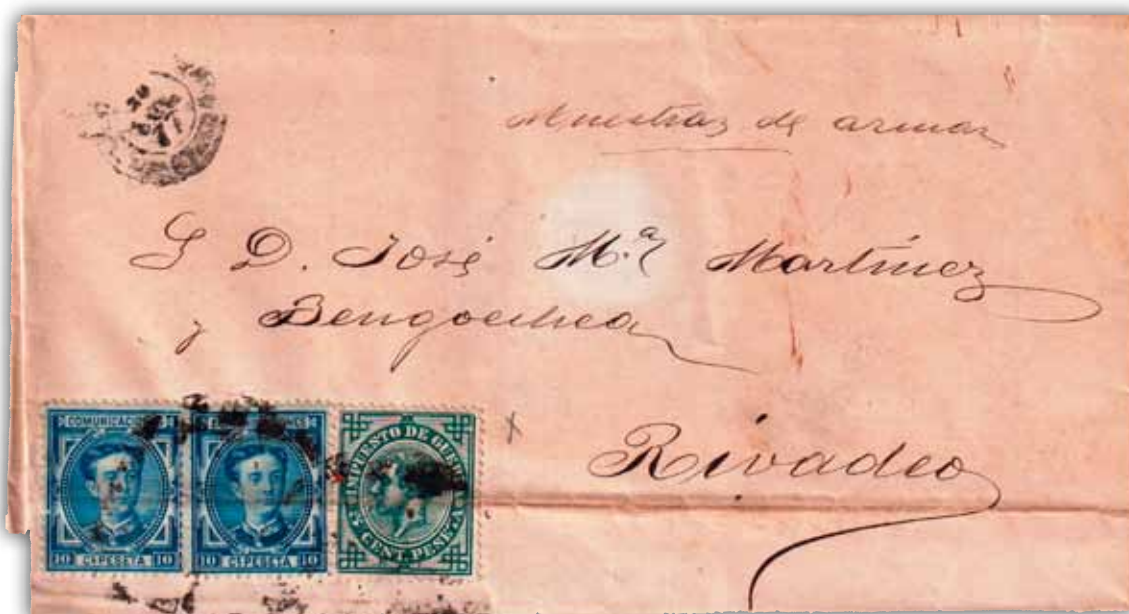 Muestras de armas
S D. José M.ª Martínez
y Bengoechea
Rivadeo
COMUNICACIONES
10 Cs PESETA 10
10 Cs PESETA 10
IMPUESTO DE GUERRA
5 CENT. PESETA